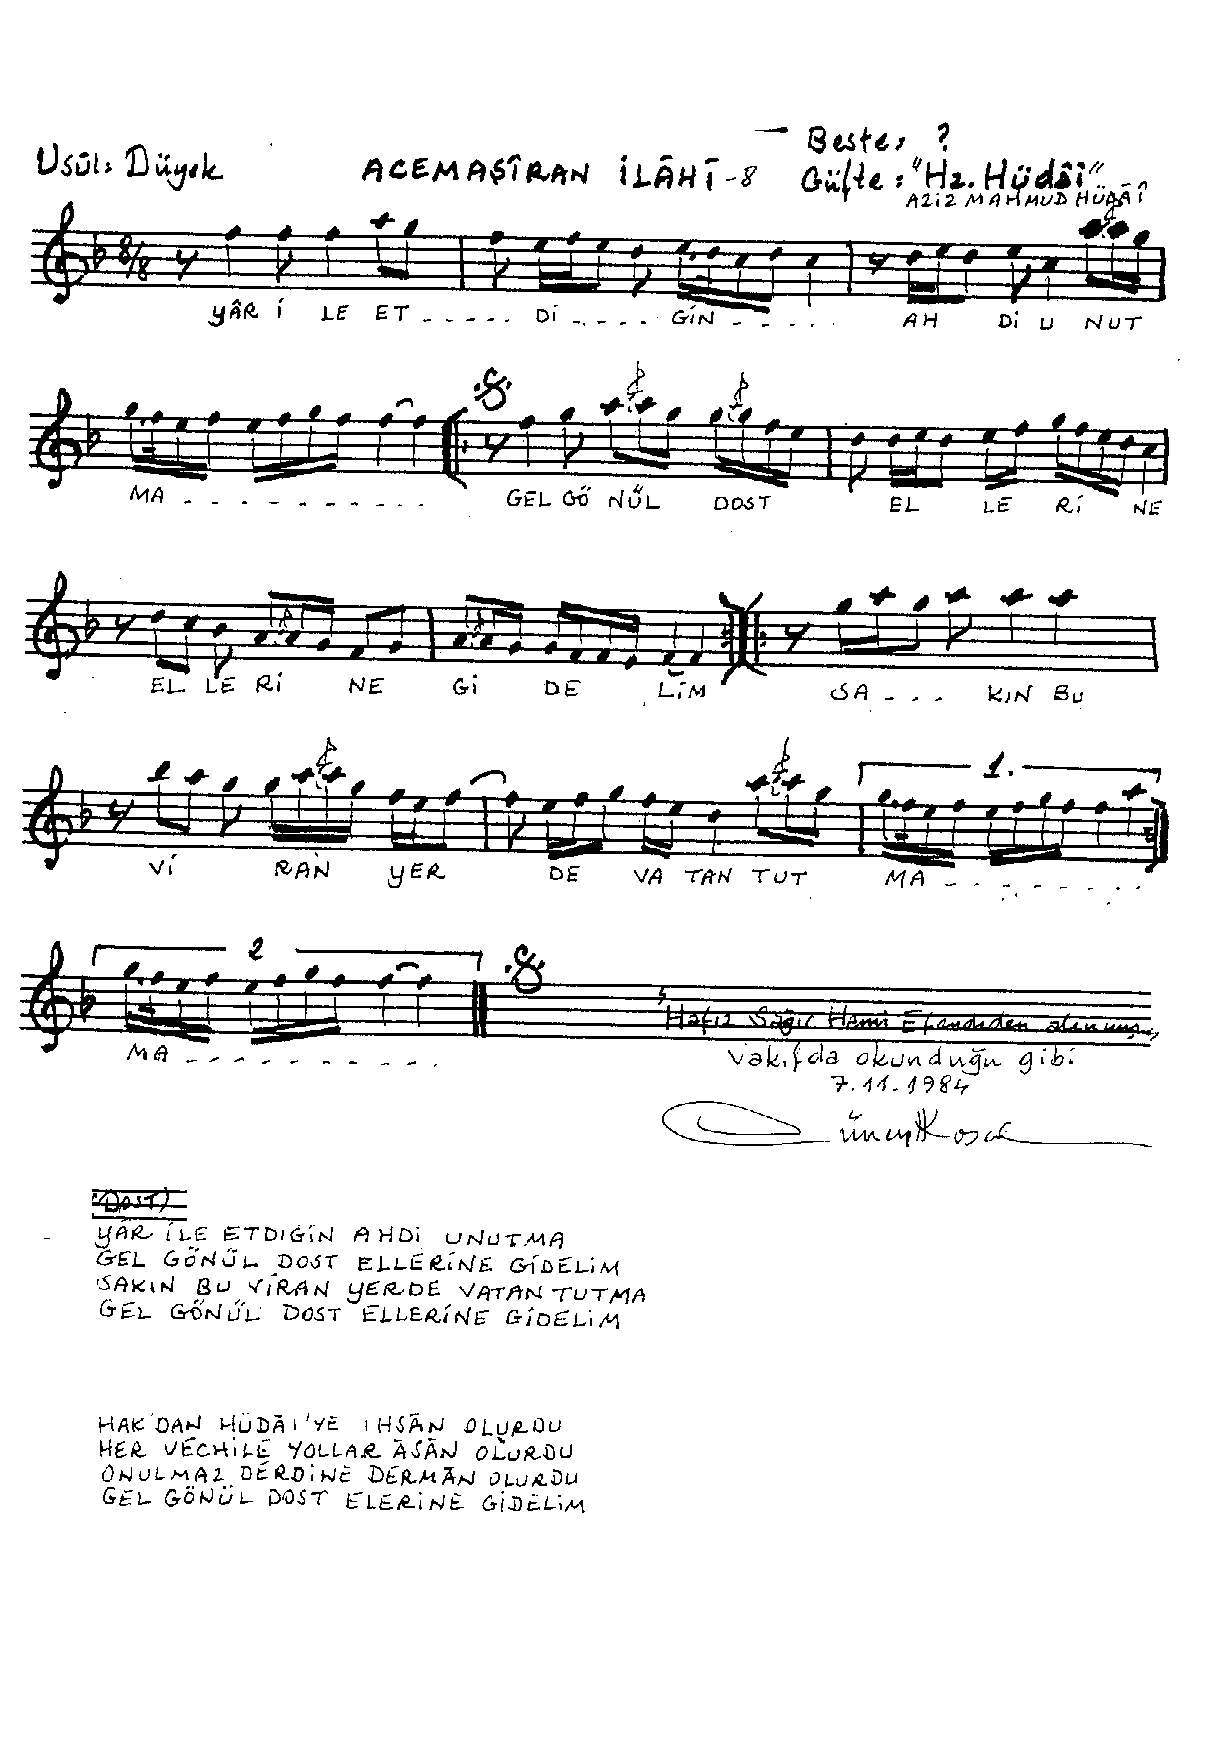 Beste: ?
Usûl: Düyek ACEMAŞÎRAN İLÂHÎ-8 Güfte: "Hz. Hüdâî"
AZİZ MAHMUD HÜDÂÎ
8/8
YÂR İ LE ET - - - - - Dİ - - - - - GİN - - - - - AH Dİ U NUT
MA - - - - - - - - - GEL GÖ NÜL DOST EL LE Rİ NE
EL LE Rİ NE Gİ DE LİM SA - - - KIN BU
1.
Vİ RAN YER DE VA TAN TUT MA - - - - - - - -
2
Hafız Sağır Hami Efendiden alınmış,
MA - - - - - - - - - Vakıfda okunduğu gibi
7.11.1984
Cüneyt Kosal
(DOST)
YÂR İLE ETDIĞİN AHDİ UNUTMA
GEL GÖNÜL DOST ELLERİNE GİDELİM
SAKIN BU VİRAN YERDE VATAN TUTMA
GEL GÖNÜL DOST ELLERİNE GİDELİM
HAK'DAN HÜDÂİ'YE IHSÂN OLURDU
HER VECHİLE YOLLAR ÂSÂN OLURDU
ONULMAZ DERDİNE DERMÂN OLURDU
GEL GÖNÜL DOST ELERİNE GİDELİM